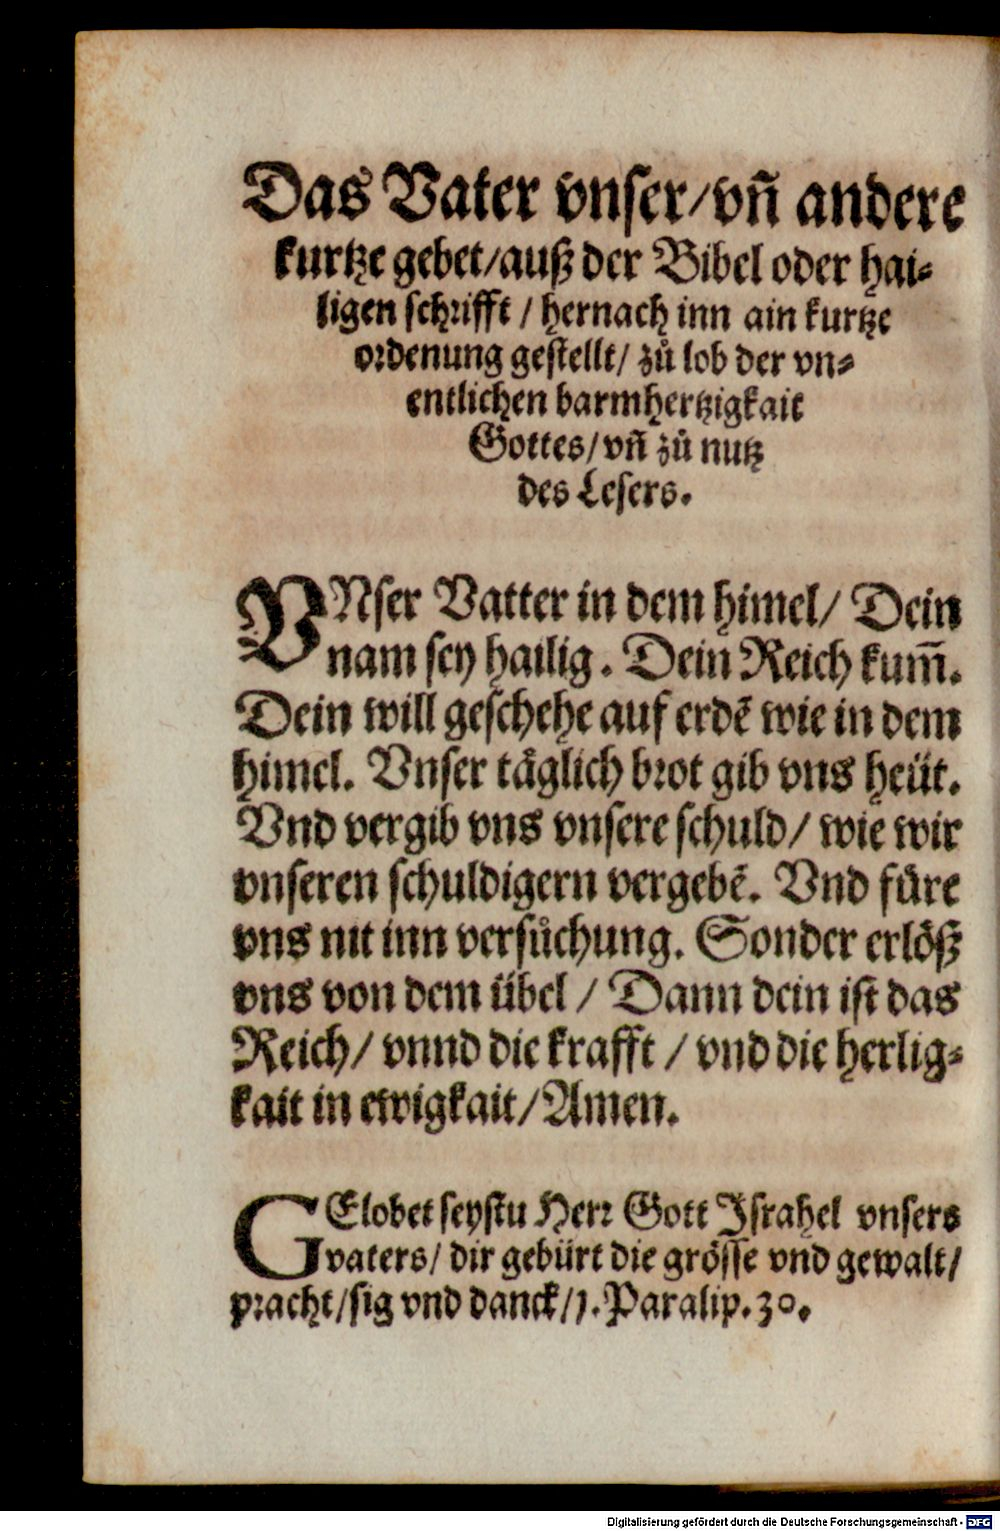 Das Vater vnser/vn̄ andere
kurtze gebet/auß der Bibel oder hai⸗
ligen schrifft / hernach inn ain kurtze
ordenung gestellt/ zů lob der vn⸗
entlichen barmhertzigkait
Gottes/vn̄ zů nutz
des Lesers.
VNser Vatter in dem himel/ Dein
nam sey hailig. Dein Reich kum̄.
Dein will geschehe auf erdē wie in dem
himel. Vnser täglich brot gib vns heüt.
Vnd vergib vns vnsere schuld/ wie wir
vnseren schuldigern vergebē. Vnd füre
vns nit inn versůchung. Sonder erlöß
vns von dem übel / Dann dein ist das
Reich/ vnnd die krafft / vnd die herlig⸗
kait in ewigkait/Amen.
GElobet seystu Herr Gott Israhel vnsers
vaters/ dir gebürt die grösse vnd gewalt/
pracht/sig vnd danck/1. Paralip. 30.
Digitalisierung gefördert durch die Deutsche Forschungsgemeinschaft - DFG